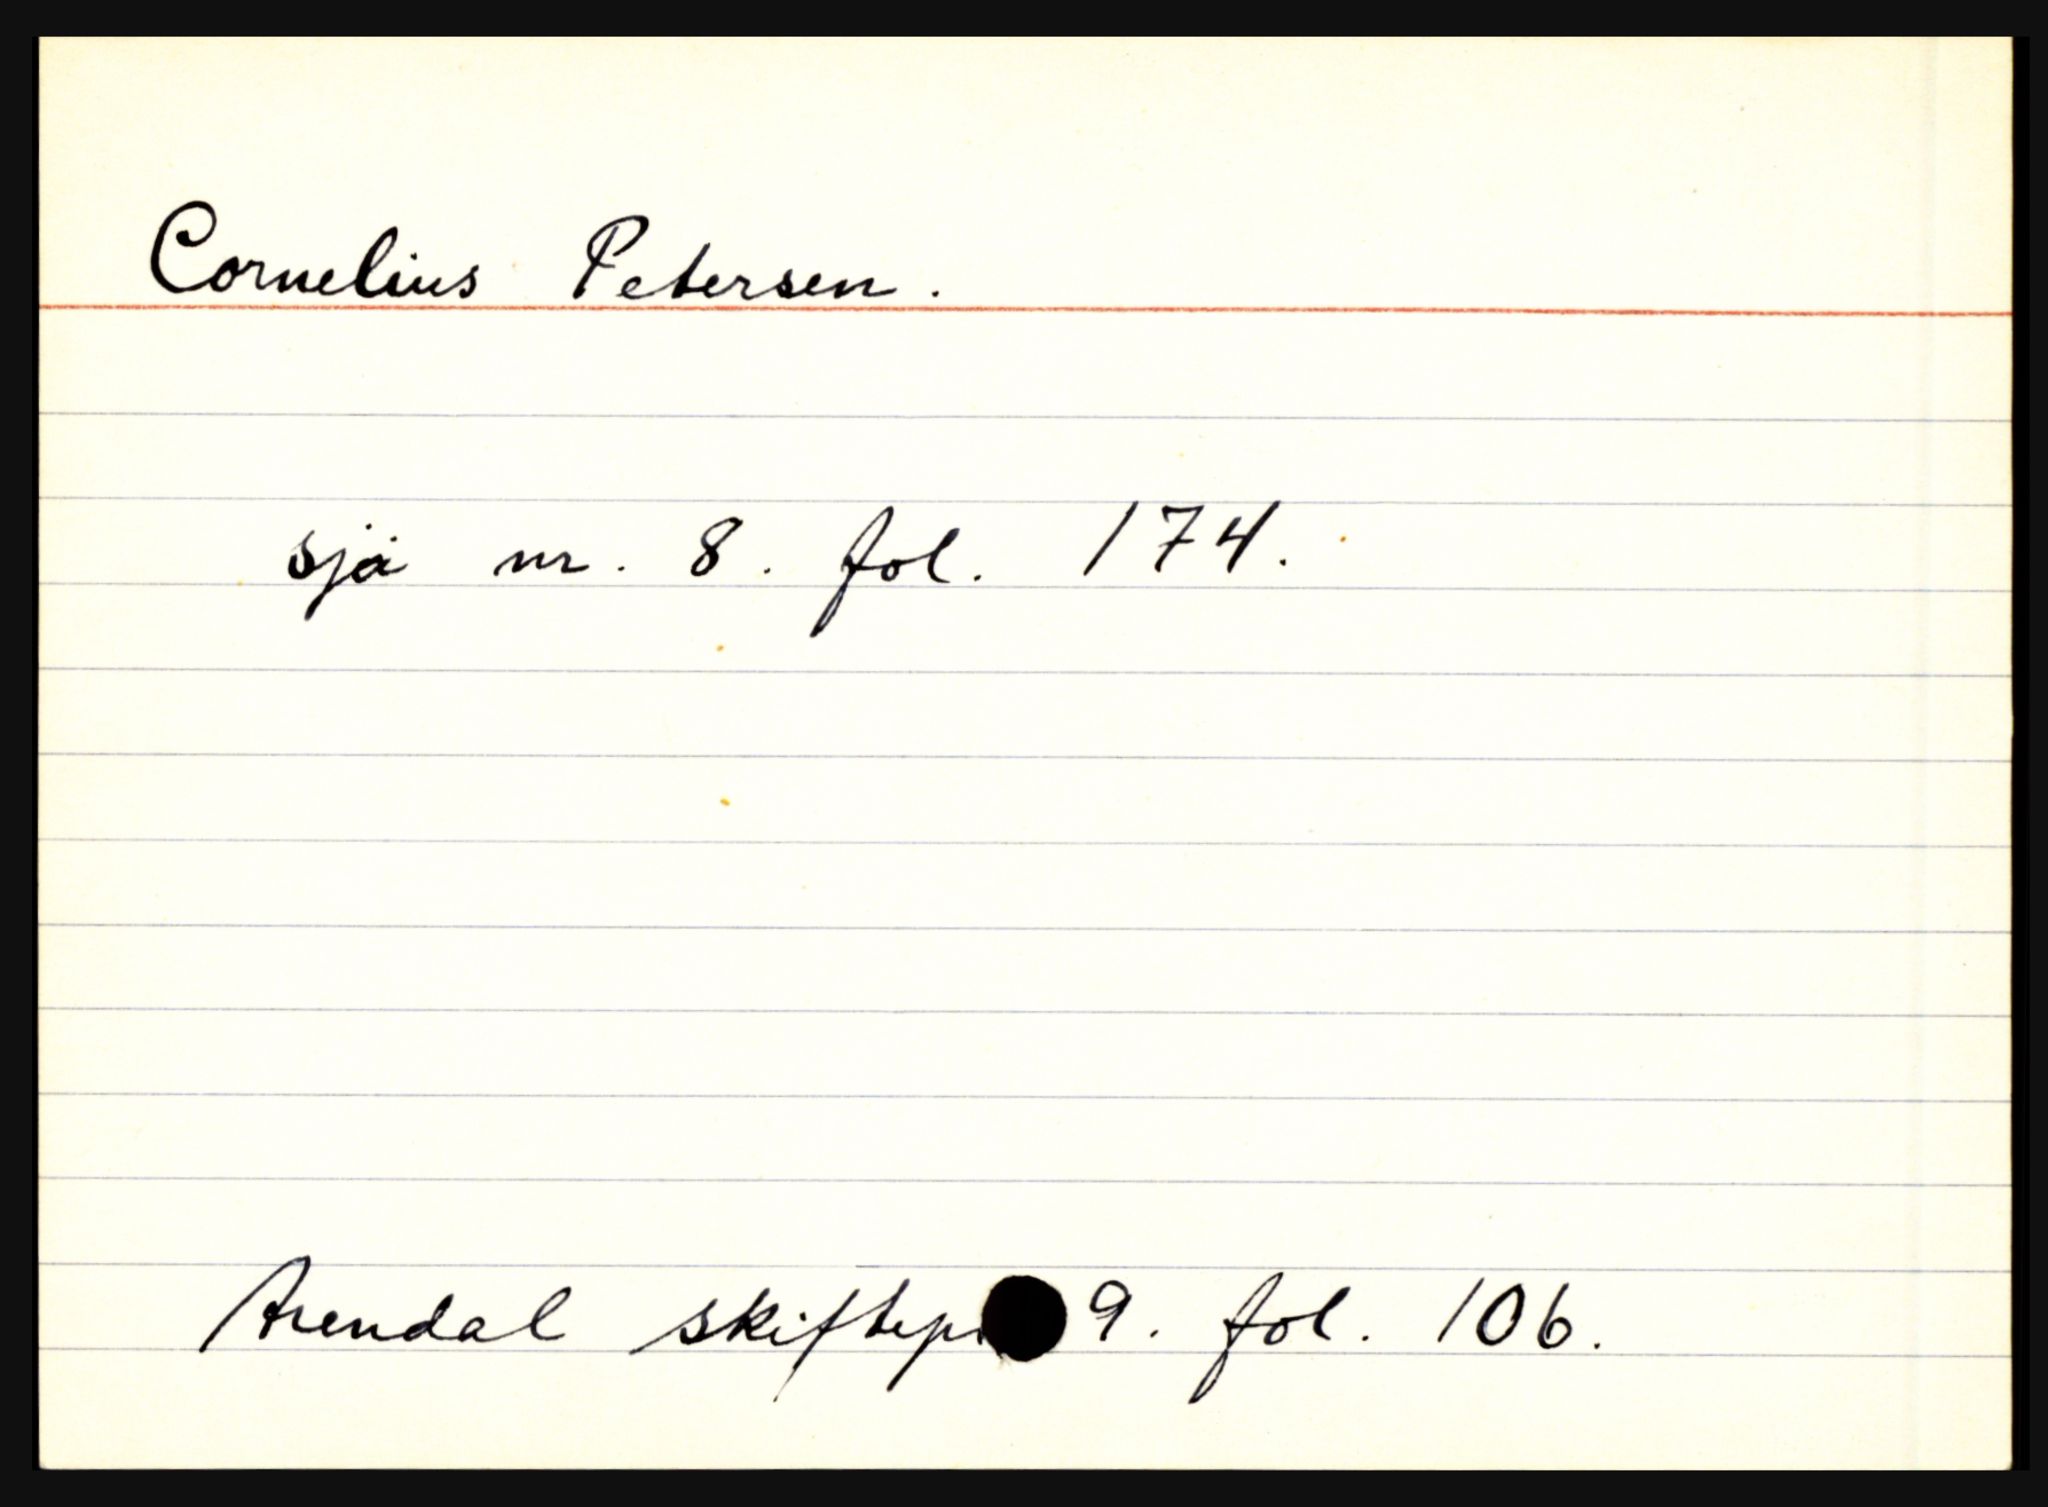 Cornelius Petersen.
sjå nr. 8. fol. 174.
Arendal skiftepr. 9. fol. 106.